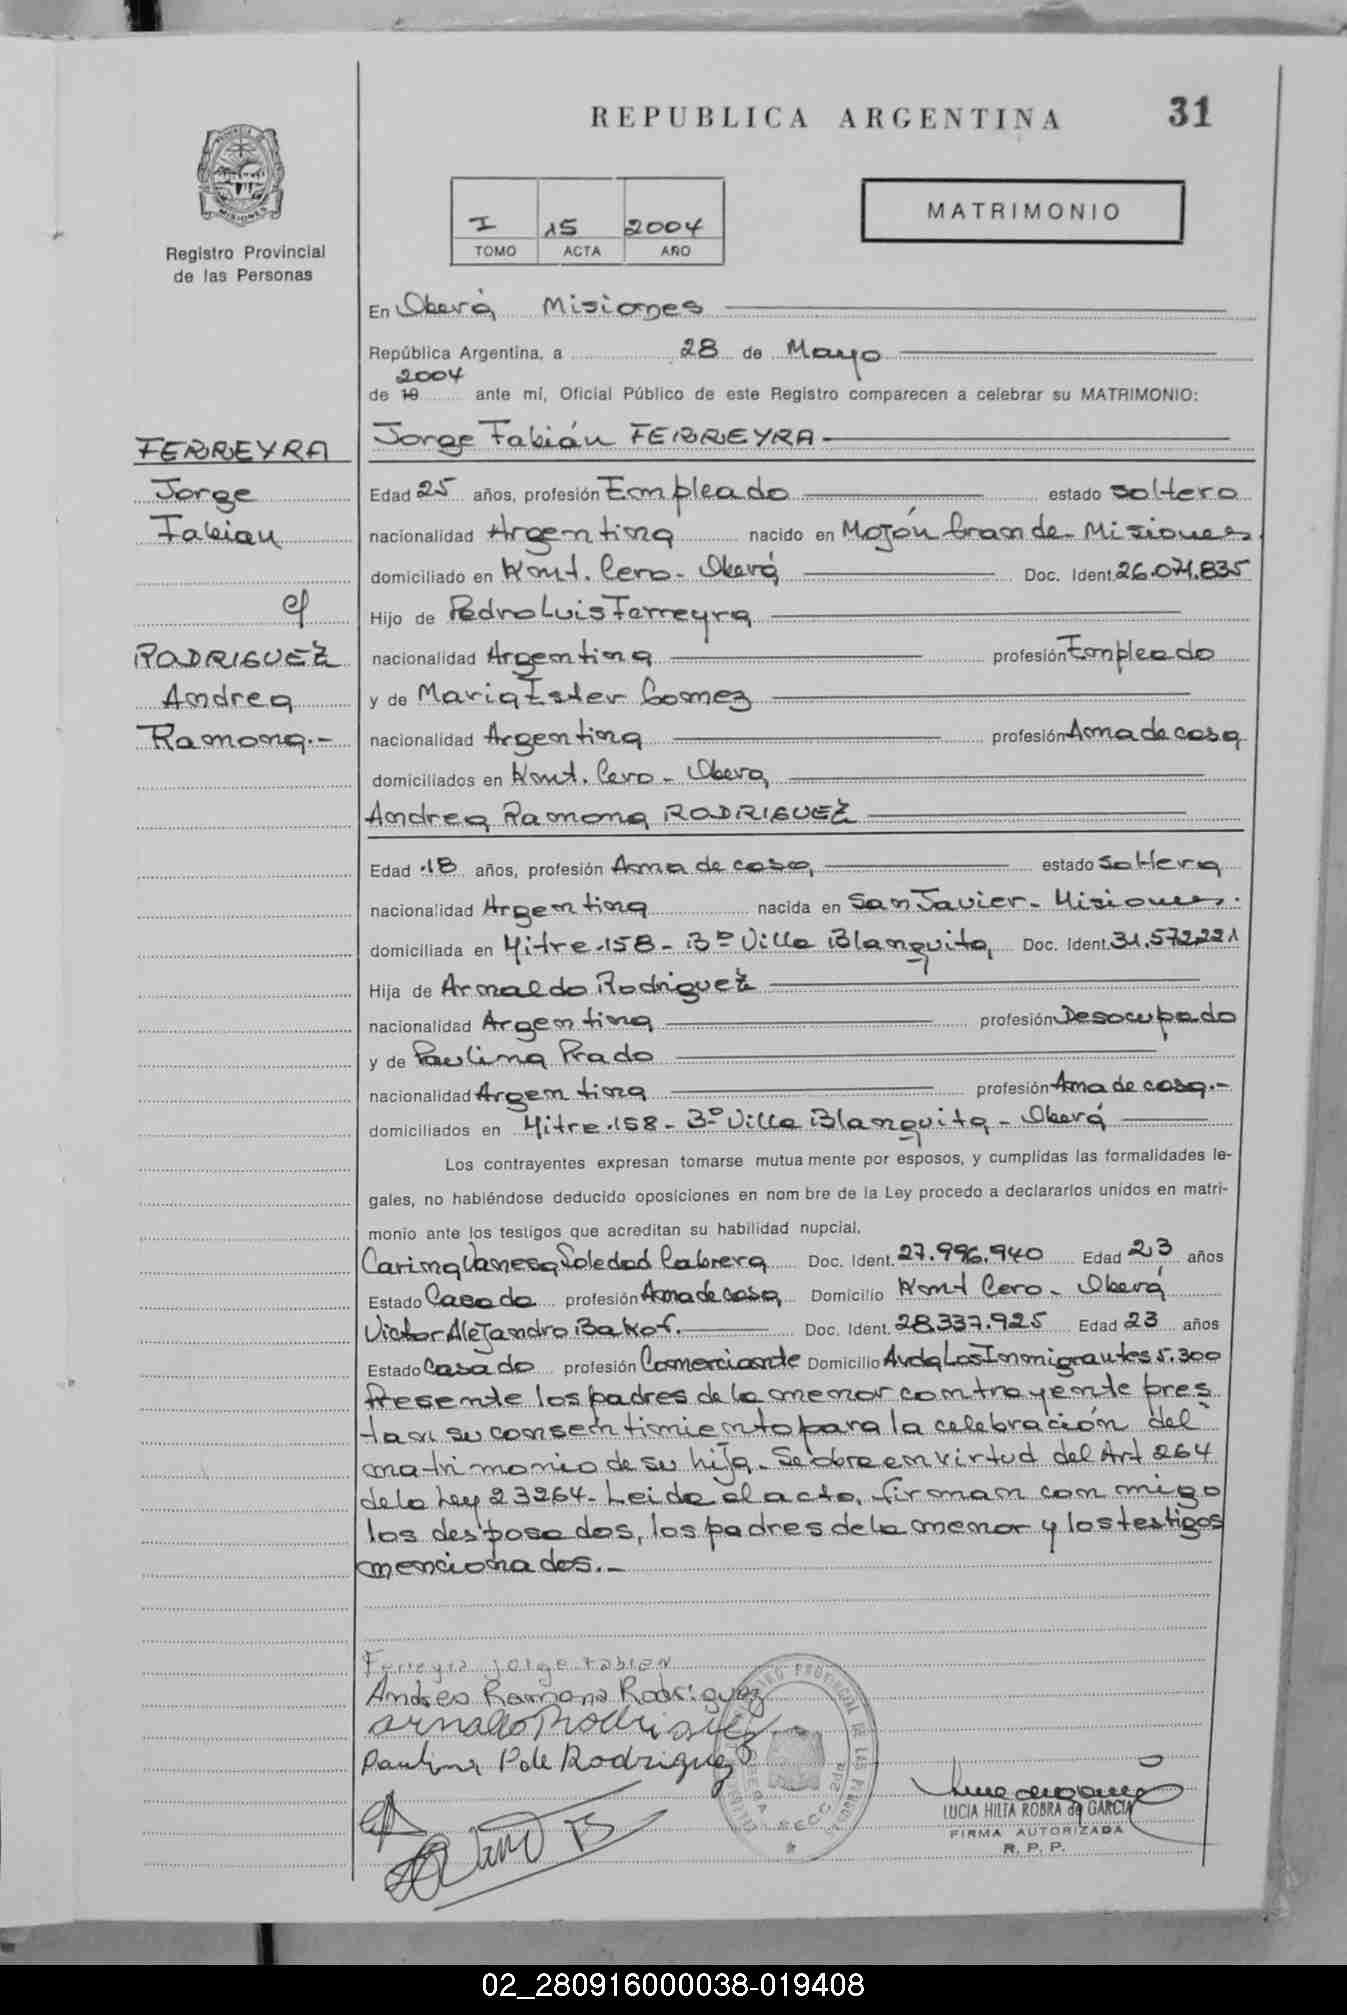 REPUBLICA ARGENTINA 31
PROVINCIA DE MISIONES
Registro Provincial
de las Personas
I 15 2004
TOMO ACTA AÑO
MATRIMONIO
En Oberá Misiones
República Argentina, a 28 de Mayo
2004
de 19 ante mí, Oficial Público de este Registro comparecen a celebrar su MATRIMONIO:
FERREYRA
Jorge
Fabian
c/
RODRIGUEZ
Andrea
Ramona.-
Jorge Fabián FERREYRA
Edad 25 años, profesión Empleado estado soltero
nacionalidad Argentina nacido en Mojón Grande- Misiones
domiciliado en Kmt. Cero- Oberá Doc. Ident. 26.071.835
Hijo de Pedro Luis Ferreyra
nacionalidad Argentina profesión Empleado
y de Maria Ester Gomez
nacionalidad Argentina profesión Ama de casa
domiciliados en Kmt. Cero- Obera
Andrea Ramona RODRIGUEZ
Edad 18 años, profesión Ama de casa, estado soltera
nacionalidad Argentina nacida en San Javier- Misiones.
domiciliada en Mitre 158- Bº Villa Blanquita, Doc. Ident. 31.572.221
Hija de Arnaldo Rodriguez
nacionalidad Argentina profesión Desocupado
y de Paulina Prado
nacionalidad Argentina profesión Ama de casa.-
domiciliados en Mitre 158- Bº Villa Blanquita- Oberá
Los contrayentes expresan tomarse mutua mente por esposos, y cumplidas las formalidades le-
gales, no habiéndose deducido oposiciones en nom bre de la Ley procedo a declararlos unidos en matri-
monio ante los testigos que acreditan su habilidad nupcial.
Carina Vanesa Soledad Cabrera Doc. Ident. 27.996.940 Edad 23 años
Estado Casada profesión Ama de casa, Domicilio Kmt Cero- Oberá
Victor Alejandro Bakof. Doc. Ident. 28.337.925 Edad 23 años
Estado Casado profesión Comerciante Domicilio Avda Los Inmigrantes 5.300
Presente los padres de la menor contrayente pres
tan su consentimiento para la celebración del
matrimonio de su hija. Se obra en virtud del Art 264
de la Ley 23264- Leida el acta, firman conmigo
los desposados, los padres de la menor y los testigos
mencionados.-
Ferreyra jorge Fabian
Andrea Ramona Rodriguez
Arnaldo Rodriguez
Paulina P de Rodriguez
LUCIA HILTA ROBRA de GARCIA
FIRMA AUTORIZADA
R. P. P.
02_280916000038-019408